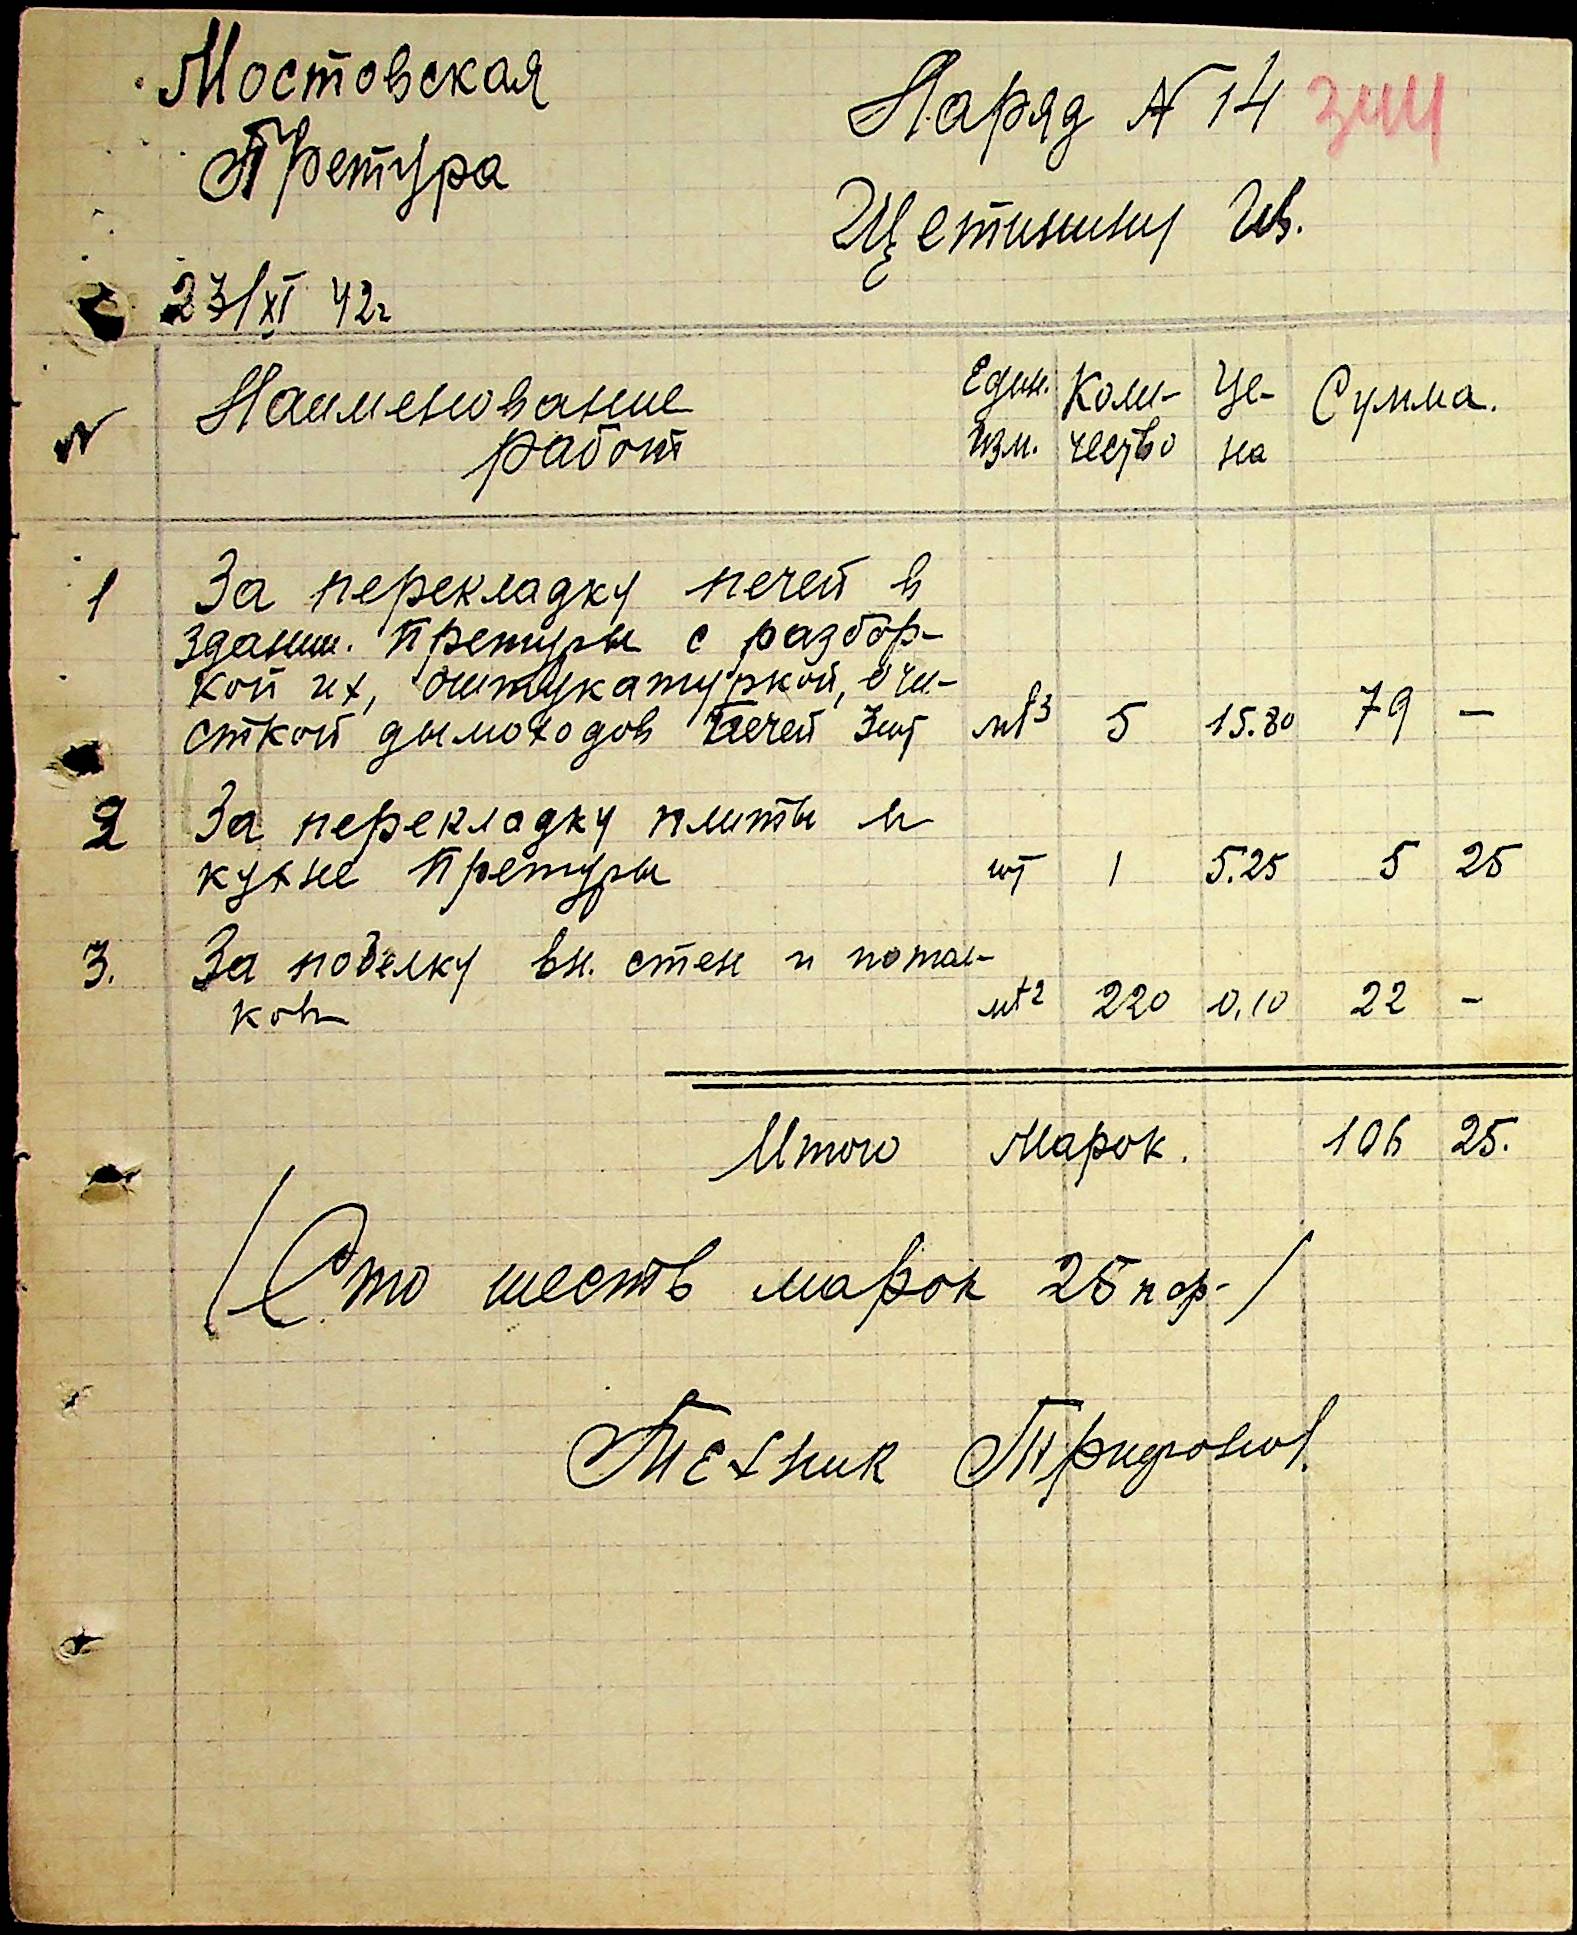 Мостовская
Претура
Наряд № 14 344
Щетинину Ив.
23/XI 42г
№ Наименование работ Един. изм. Коли-чество Це-на Сумма.
1 За перекладку печей в
здании. Претуры с разбор-
кой их, оштукатуркой, очи-
сткой дымоходов печей 3шт мт3 5 15.80 79 —
2 За перекладку плиты в
кухне Претуры шт 1 5.25 5 25
3. За побелку вн. стен и потол-
ков мт2 220 0,10 22 -
Итого Марок. 106 25.
/Сто шесть марок 25 пф-/
Техник Трифонов.